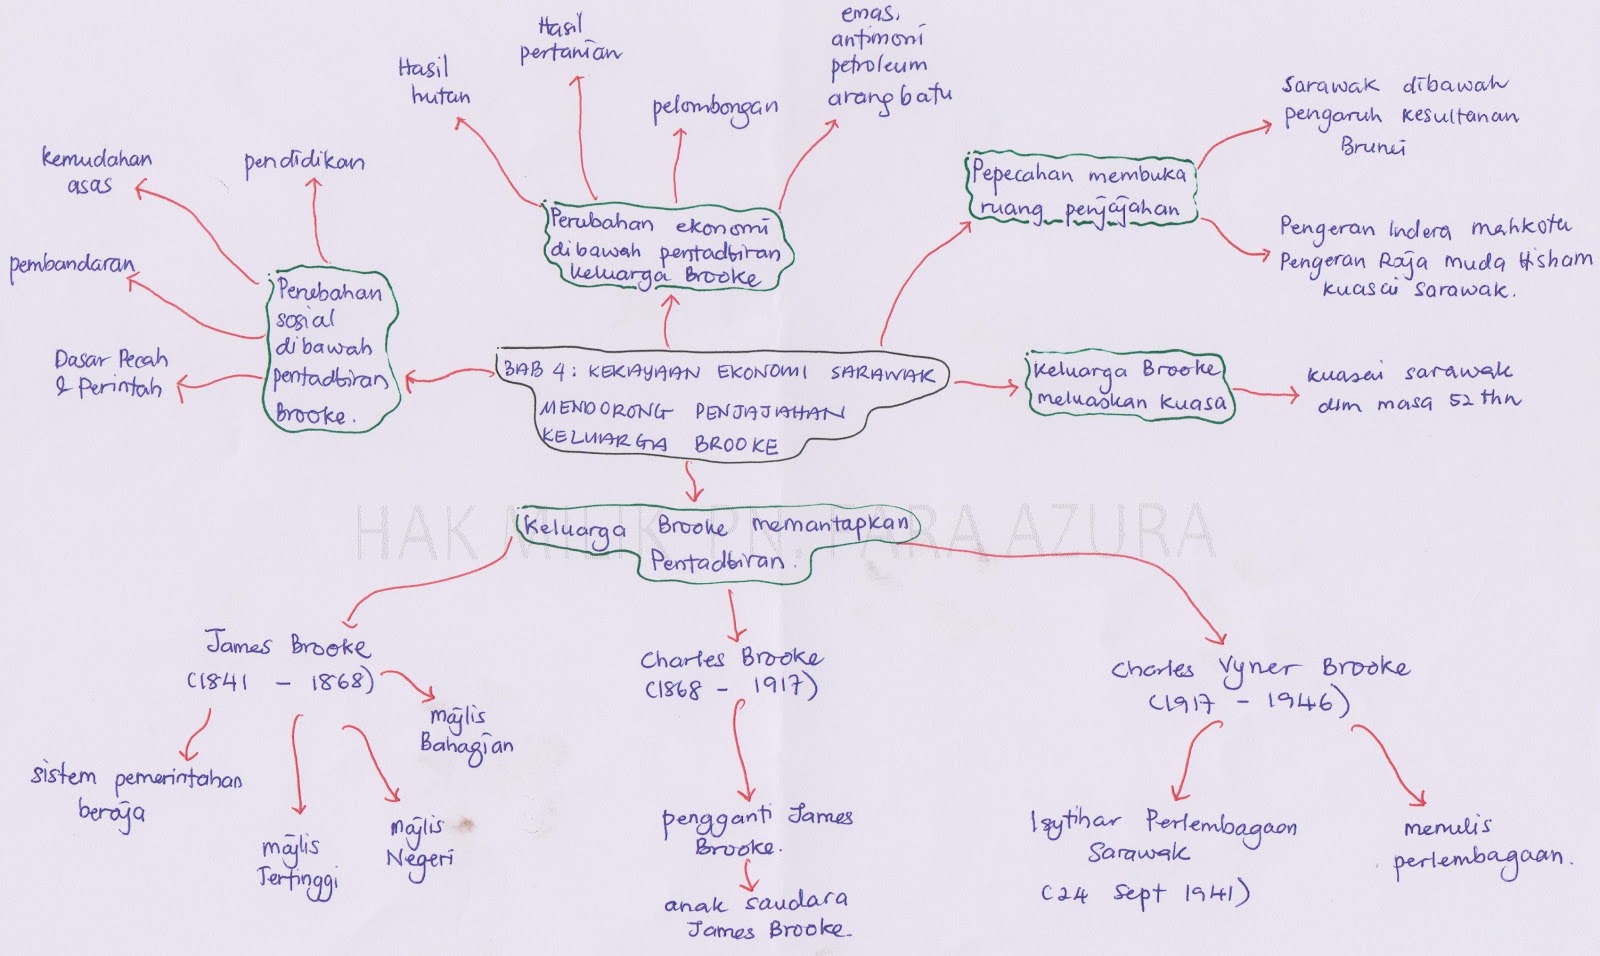 emas,
antimoni
petroleum
arang batu
Hasil
pertanian
Hasil
hutan
pelombongan
Sarawak dibawah
pengaruh kesultanan
Brunei
kemudahan
asas
pendidikan
Pepecahan membuka
ruang penjajahan
Perubahan ekonomi
dibawah pentadbiran
keluarga Brooke
Pengeran Indera mahkota
Pengeran Raja muda Hisham
kuasai sarawak.
pembandaran
Perubahan
sosial
dibawah
pentadbiran
Brooke.
Dasar Pecah
& Perintah
BAB 4: KEKAYAAN EKONOMI SARAWAK
MENDORONG PENJAJAHAN
KELUARGA BROOKE
Keluarga Brooke
meluaskan kuasa
kuasai sarawak
dlm masa 52 thn
HAK MILIK PN. FARA AZURA
Keluarga Brooke memantapkan
Pentadbiran.
James Brooke
(1841 - 1868)
Charles Brooke
(1868 - 1917)
Charles Vyner Brooke
(1917 - 1946)
majlis
Bahagian
sistem pemerintahan
beraja
majlis
Tertinggi
majlis
Negeri
pengganti James
Brooke.
anak saudara
James Brooke.
Isytihar Perlembagaan
Sarawak
(24 Sept 1941)
menulis
perlembagaan.